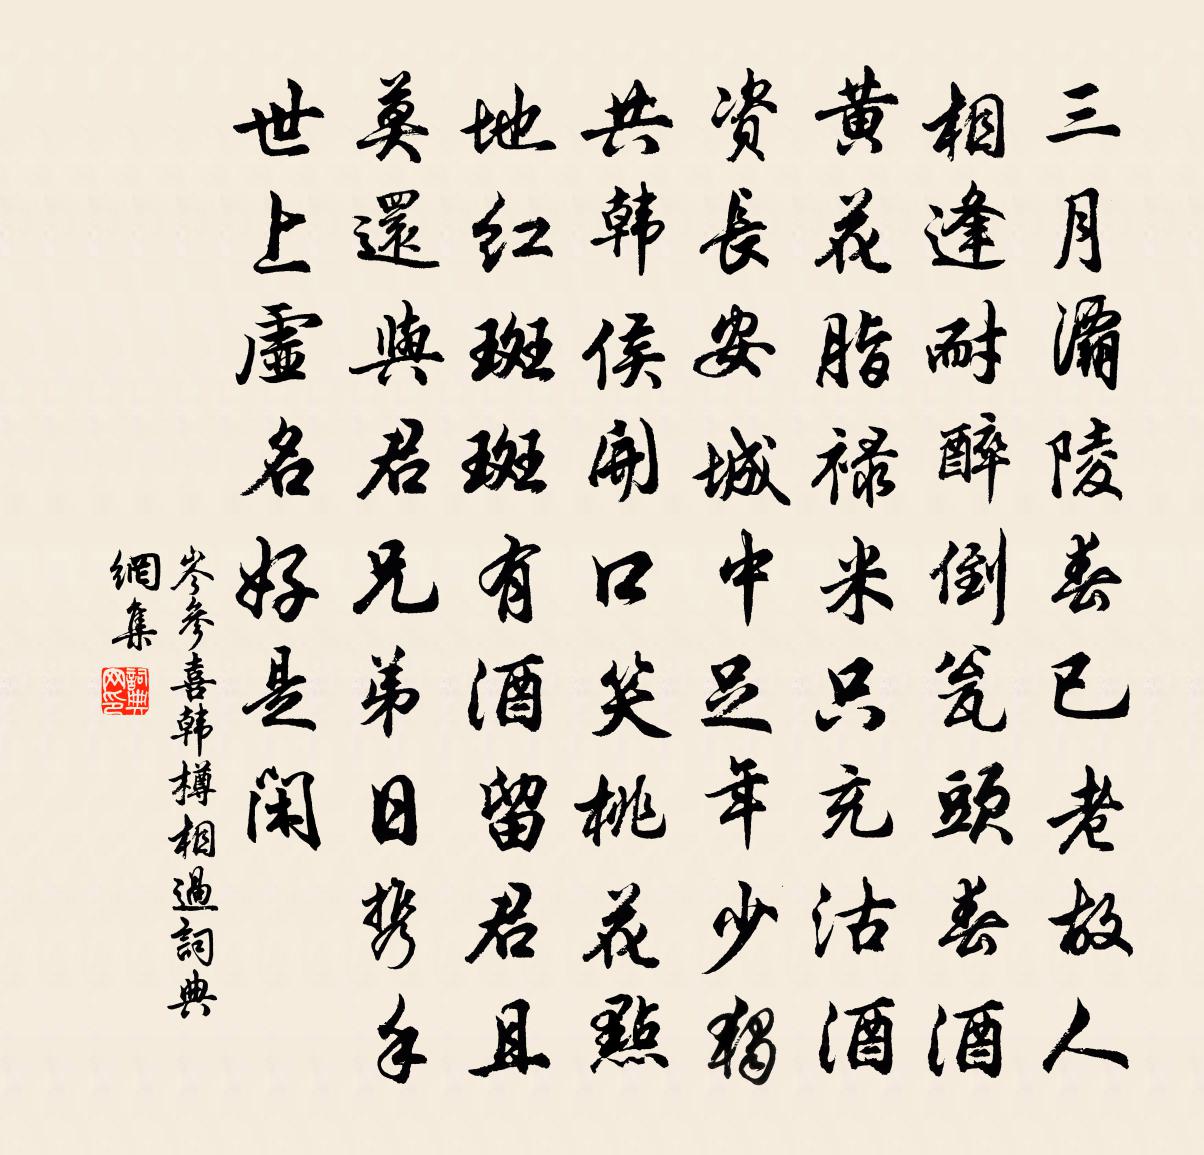 三月灞陵春已老故人
相逢耐醉倒瓮頭春酒
黄花脂禄米只充沽酒
资長安城中足年少獨
共韩侯開口笑桃花點
地红斑斑有酒留君且
莫還與君兄弟日携手
世上虚名好是闲
岑參喜韩樽相過詞典
網集
詞典
网印